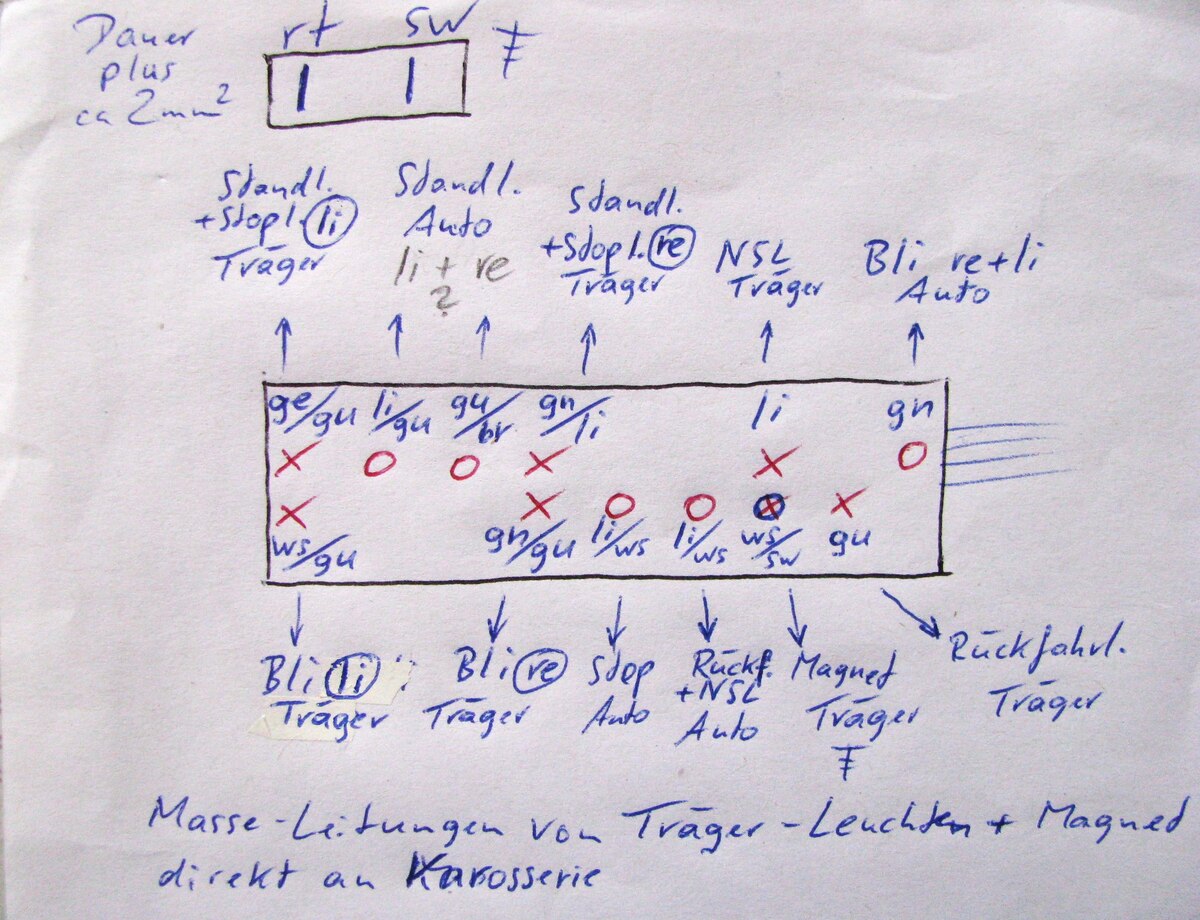 Dauer
plus
ca 2mm²
rt sw
Standl.
+Stopl. li
Träger
Standl.
Auto
li + re
?
Standl.
+Stopl. re
Träger
NSL
Träger
Bli re+li
Auto
ge/gu li/gu gu/br gn/li li gn
X O O X X O
X X O O X X
ws/gu gn/gu li/ws li/ws ws/sw gu
Bli li
Träger
Bli re
Träger
Stop
Auto
Rückf.
+NSL
Auto
Magnet
Träger
Rückfahrl.
Träger
Masse-Leitungen von Träger-Leuchten + Magnet
direkt an Karosserie